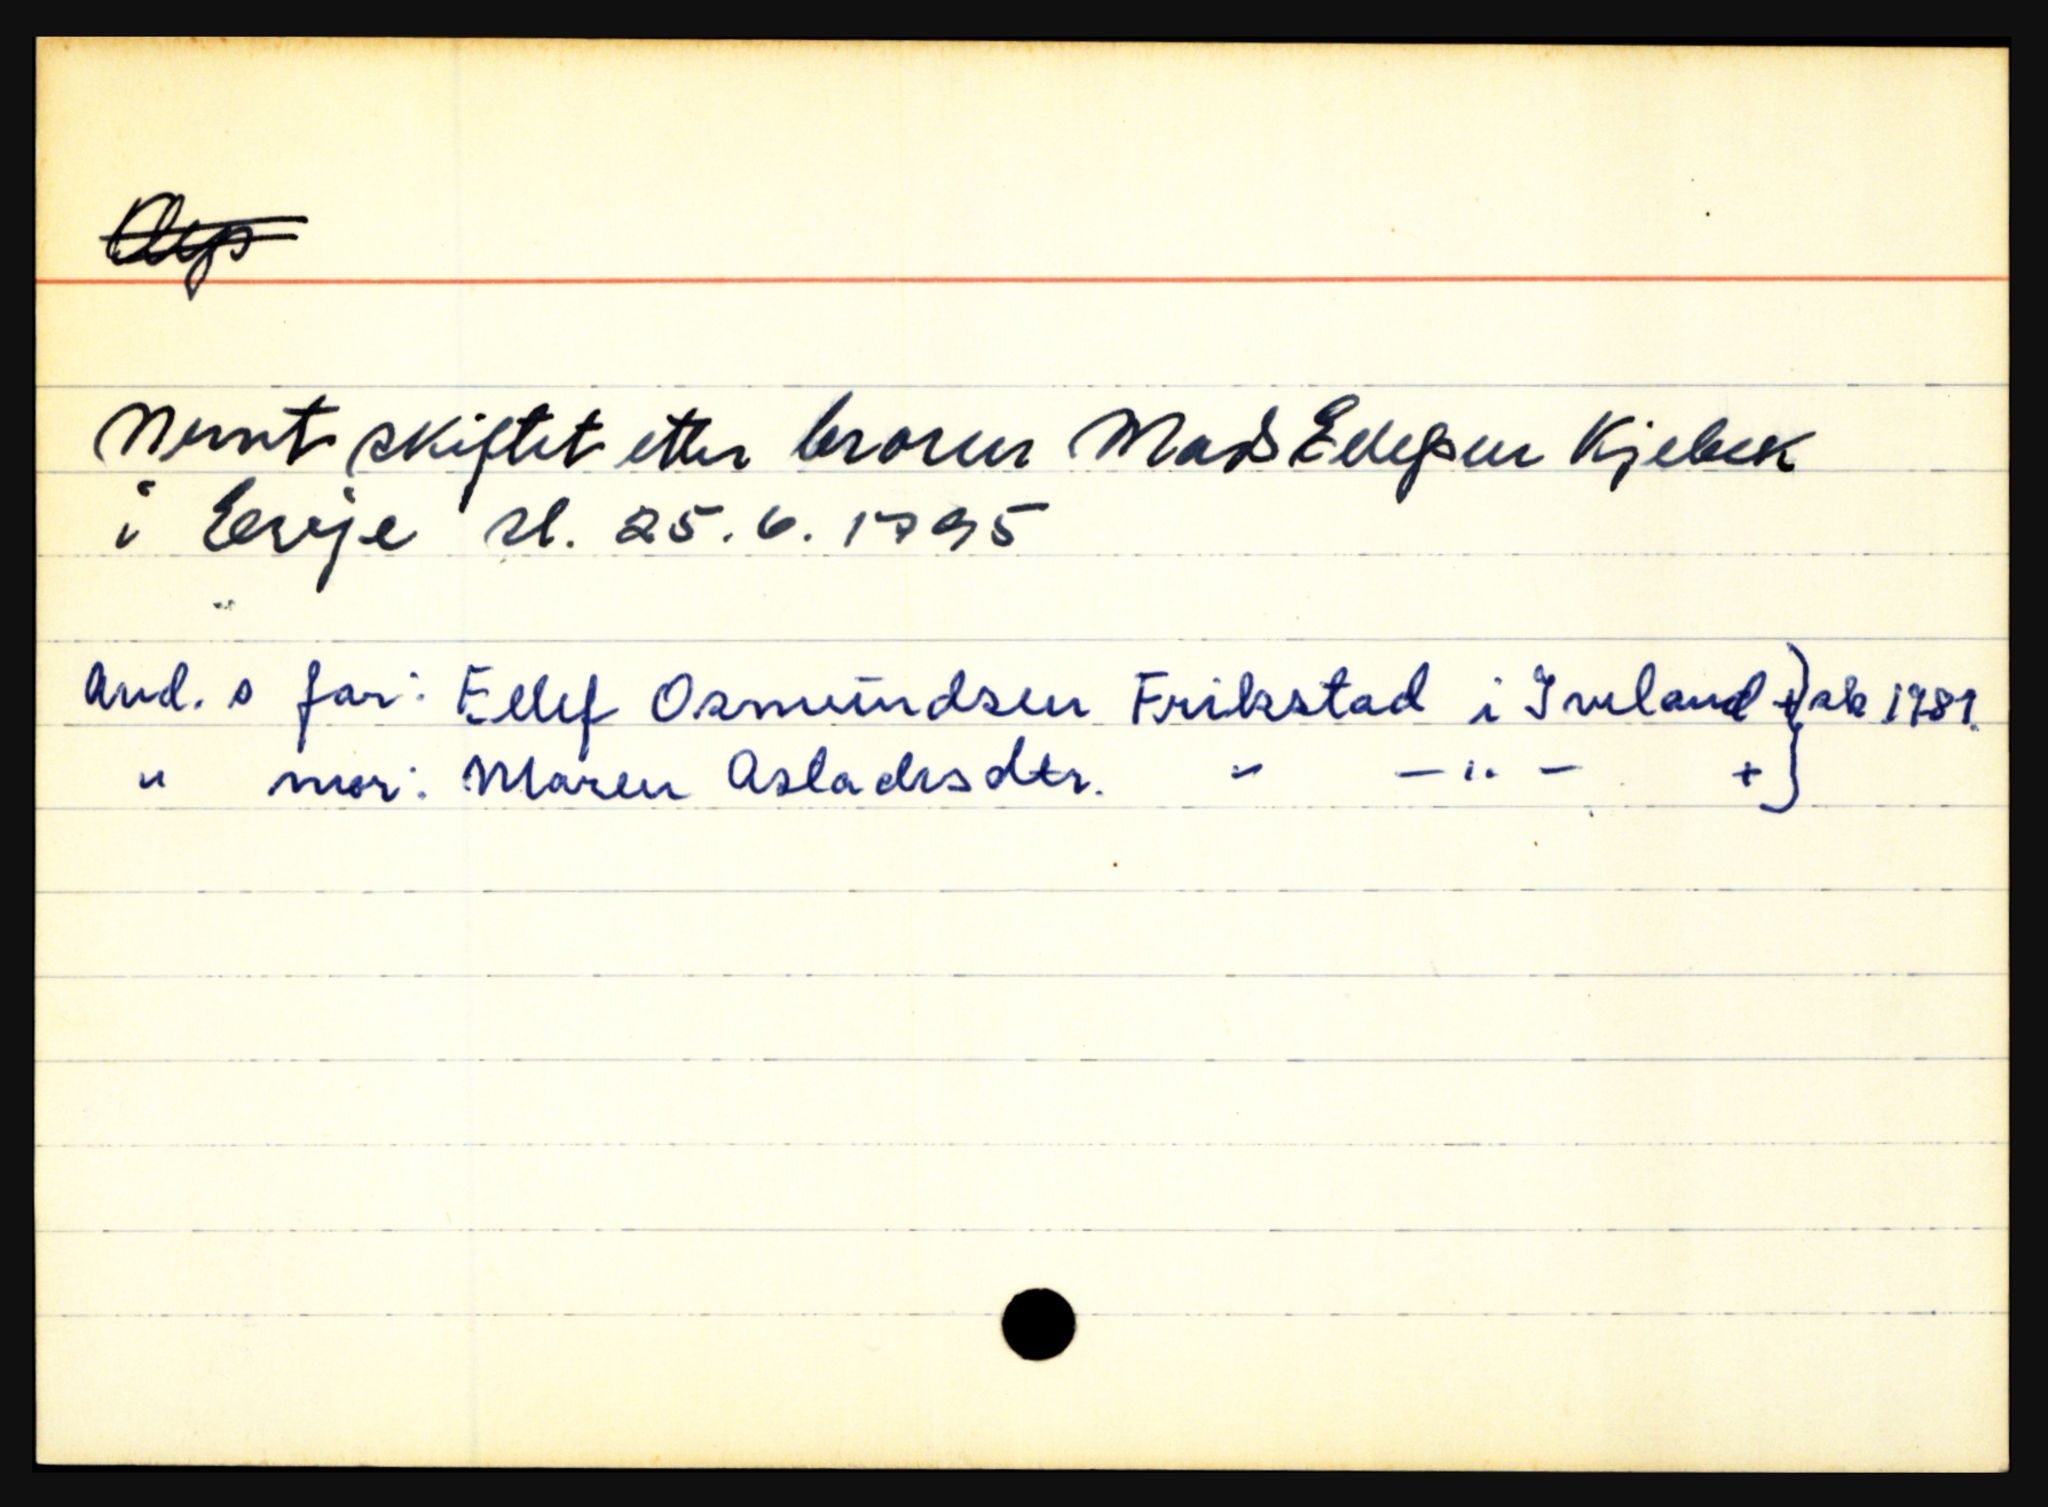 Nevnt skiftet etter broren Mads Ellefsen Kjebek
i Evje sl. 25.6.1795
And. s far: Ellef Osmundsen Frikstad i Iveland + } sk 1781.
" mor: Maren Asladsdtr. " — " — + }